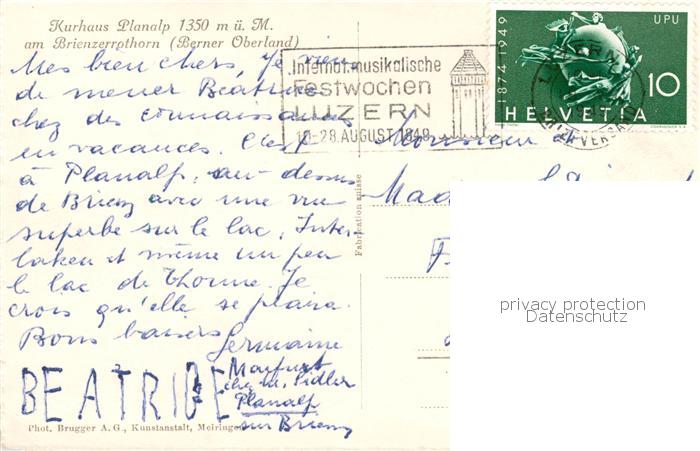 Kurhaus Planalp 1350 m ü. M.
am Brienzerrothorn (Berner Oberland)
Mes bien chers, Je viens
de mener Béatrice
chez des connaissances
en vacances. C'est
à Planalp, au-dessus
de Brienz avec une vue
superbe sur le lac, Inter-
laken et même un peu
le lac de Thoune. Je
crois qu'elle se plaira.
Bons baisers
Germaine
BEATRICE
chez M. Fidler
Planalp
sur Brienz
Phot. Brugger A. G., Kunstanstalt, Meiringen
Fabrication suisse
Internat. musikalische
Festwochen
LUZERN
10-28. AUGUST 1949
1874-1949
UPU
10
HELVETIA
LUZERN
Monsieur et
Mad
privacy protection
Datenschutz